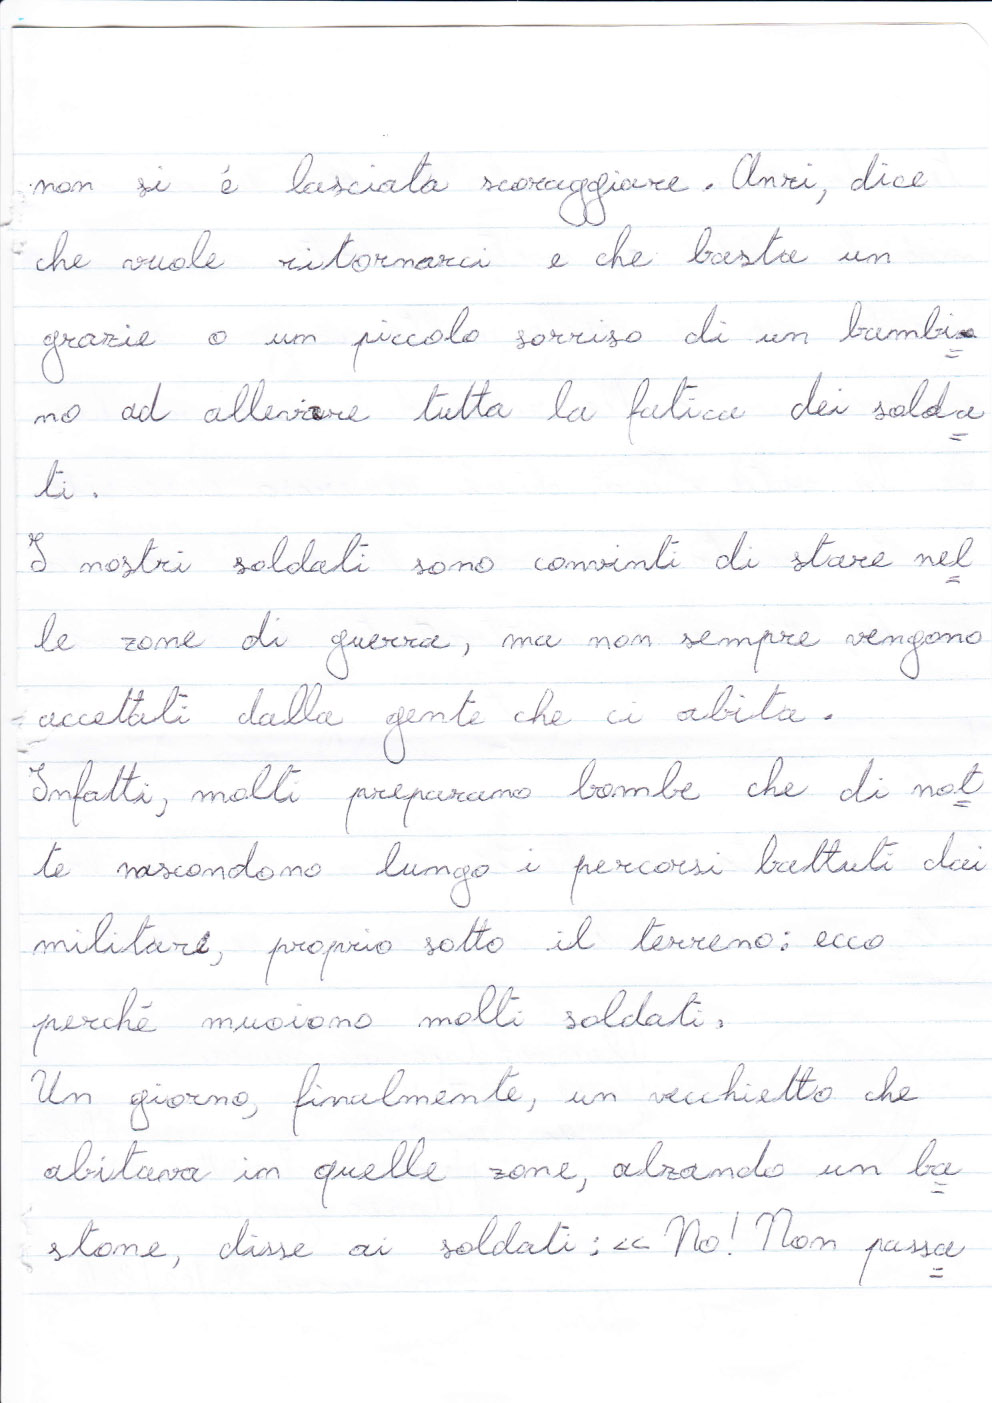 non si é lasciata scoraggiare. Anzi, dice
che vuole ritornarci e che basta un
grazie o un piccolo sorriso di un bambi=
no ad alleviare tutta la fatica dei solda=
ti.
I nostri soldati sono convinti di stare nel=
le zone di guerra, ma non sempre vengono
accettati dalla gente che ci abita.
Infatti, molti preparano bombe che di not=
te nascondono lungo i percorsi battuti dai
militari, proprio sotto il terreno: ecco
perché muoiono molti soldati.
Un giorno, finalmente, un vecchietto che
abitava in quelle zone, alzando un ba=
stone, disse ai soldati: << No! Non passa=